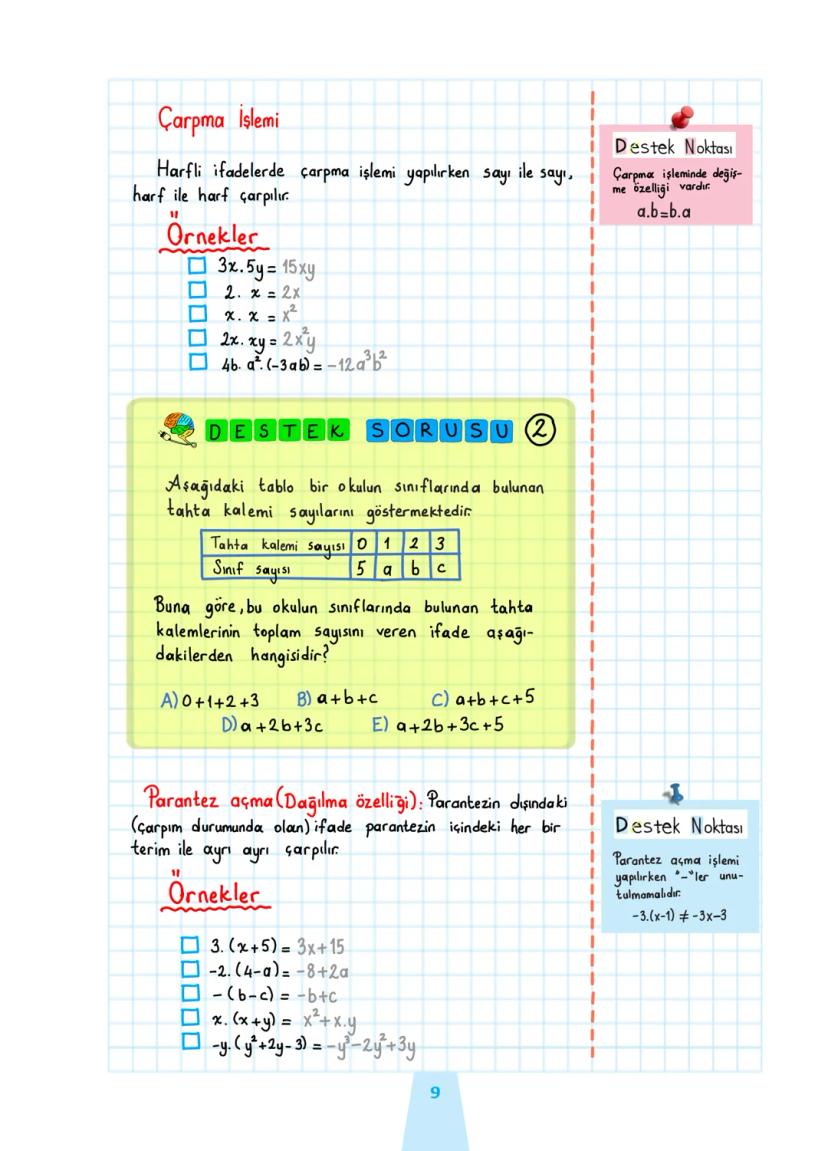 Çarpma İşlemi
Harfli ifadelerde çarpma işlemi yapılırken sayı ile sayı,
harf ile harf çarpılır.
Örnekler
3x.5y = 15xy
2. x = 2x
x. x = x²
2x. xy = 2x²y
4b. a². (-3ab) = -12a³b²
Destek Noktası
Çarpma işleminde değiş-
me özelliği vardır.
a.b=b.a
DESTEK SORUSU 2
Aşağıdaki tablo bir okulun sınıflarında bulunan
tahta kalemi sayılarını göstermektedir.
Tahta kalemi sayısı 0 1 2 3
Sınıf sayısı 5 a b c
Buna göre, bu okulun sınıflarında bulunan tahta
kalemlerinin toplam sayısını veren ifade aşağı-
dakilerden hangisidir?
A) 0+1+2+3 B) a+b+c C) a+b+c+5
D) a+2b+3c E) a+2b+3c+5
Parantez açma (Dağılma özelliği): Parantezin dışındaki
(çarpım durumunda olan) ifade parantezin içindeki her bir
terim ile ayrı ayrı çarpılır.
Örnekler
3. (x+5) = 3x+15
-2. (4-a) = -8+2a
-(b-c) = -b+c
x. (x+y) = x²+x.y
-y. (y²+2y-3) = -y³-2y²+3y
Destek Noktası
Parantez açma işlemi
yapılırken "-"ler unu-
tulmamalıdır.
-3.(x-1) ≠ -3x-3
9